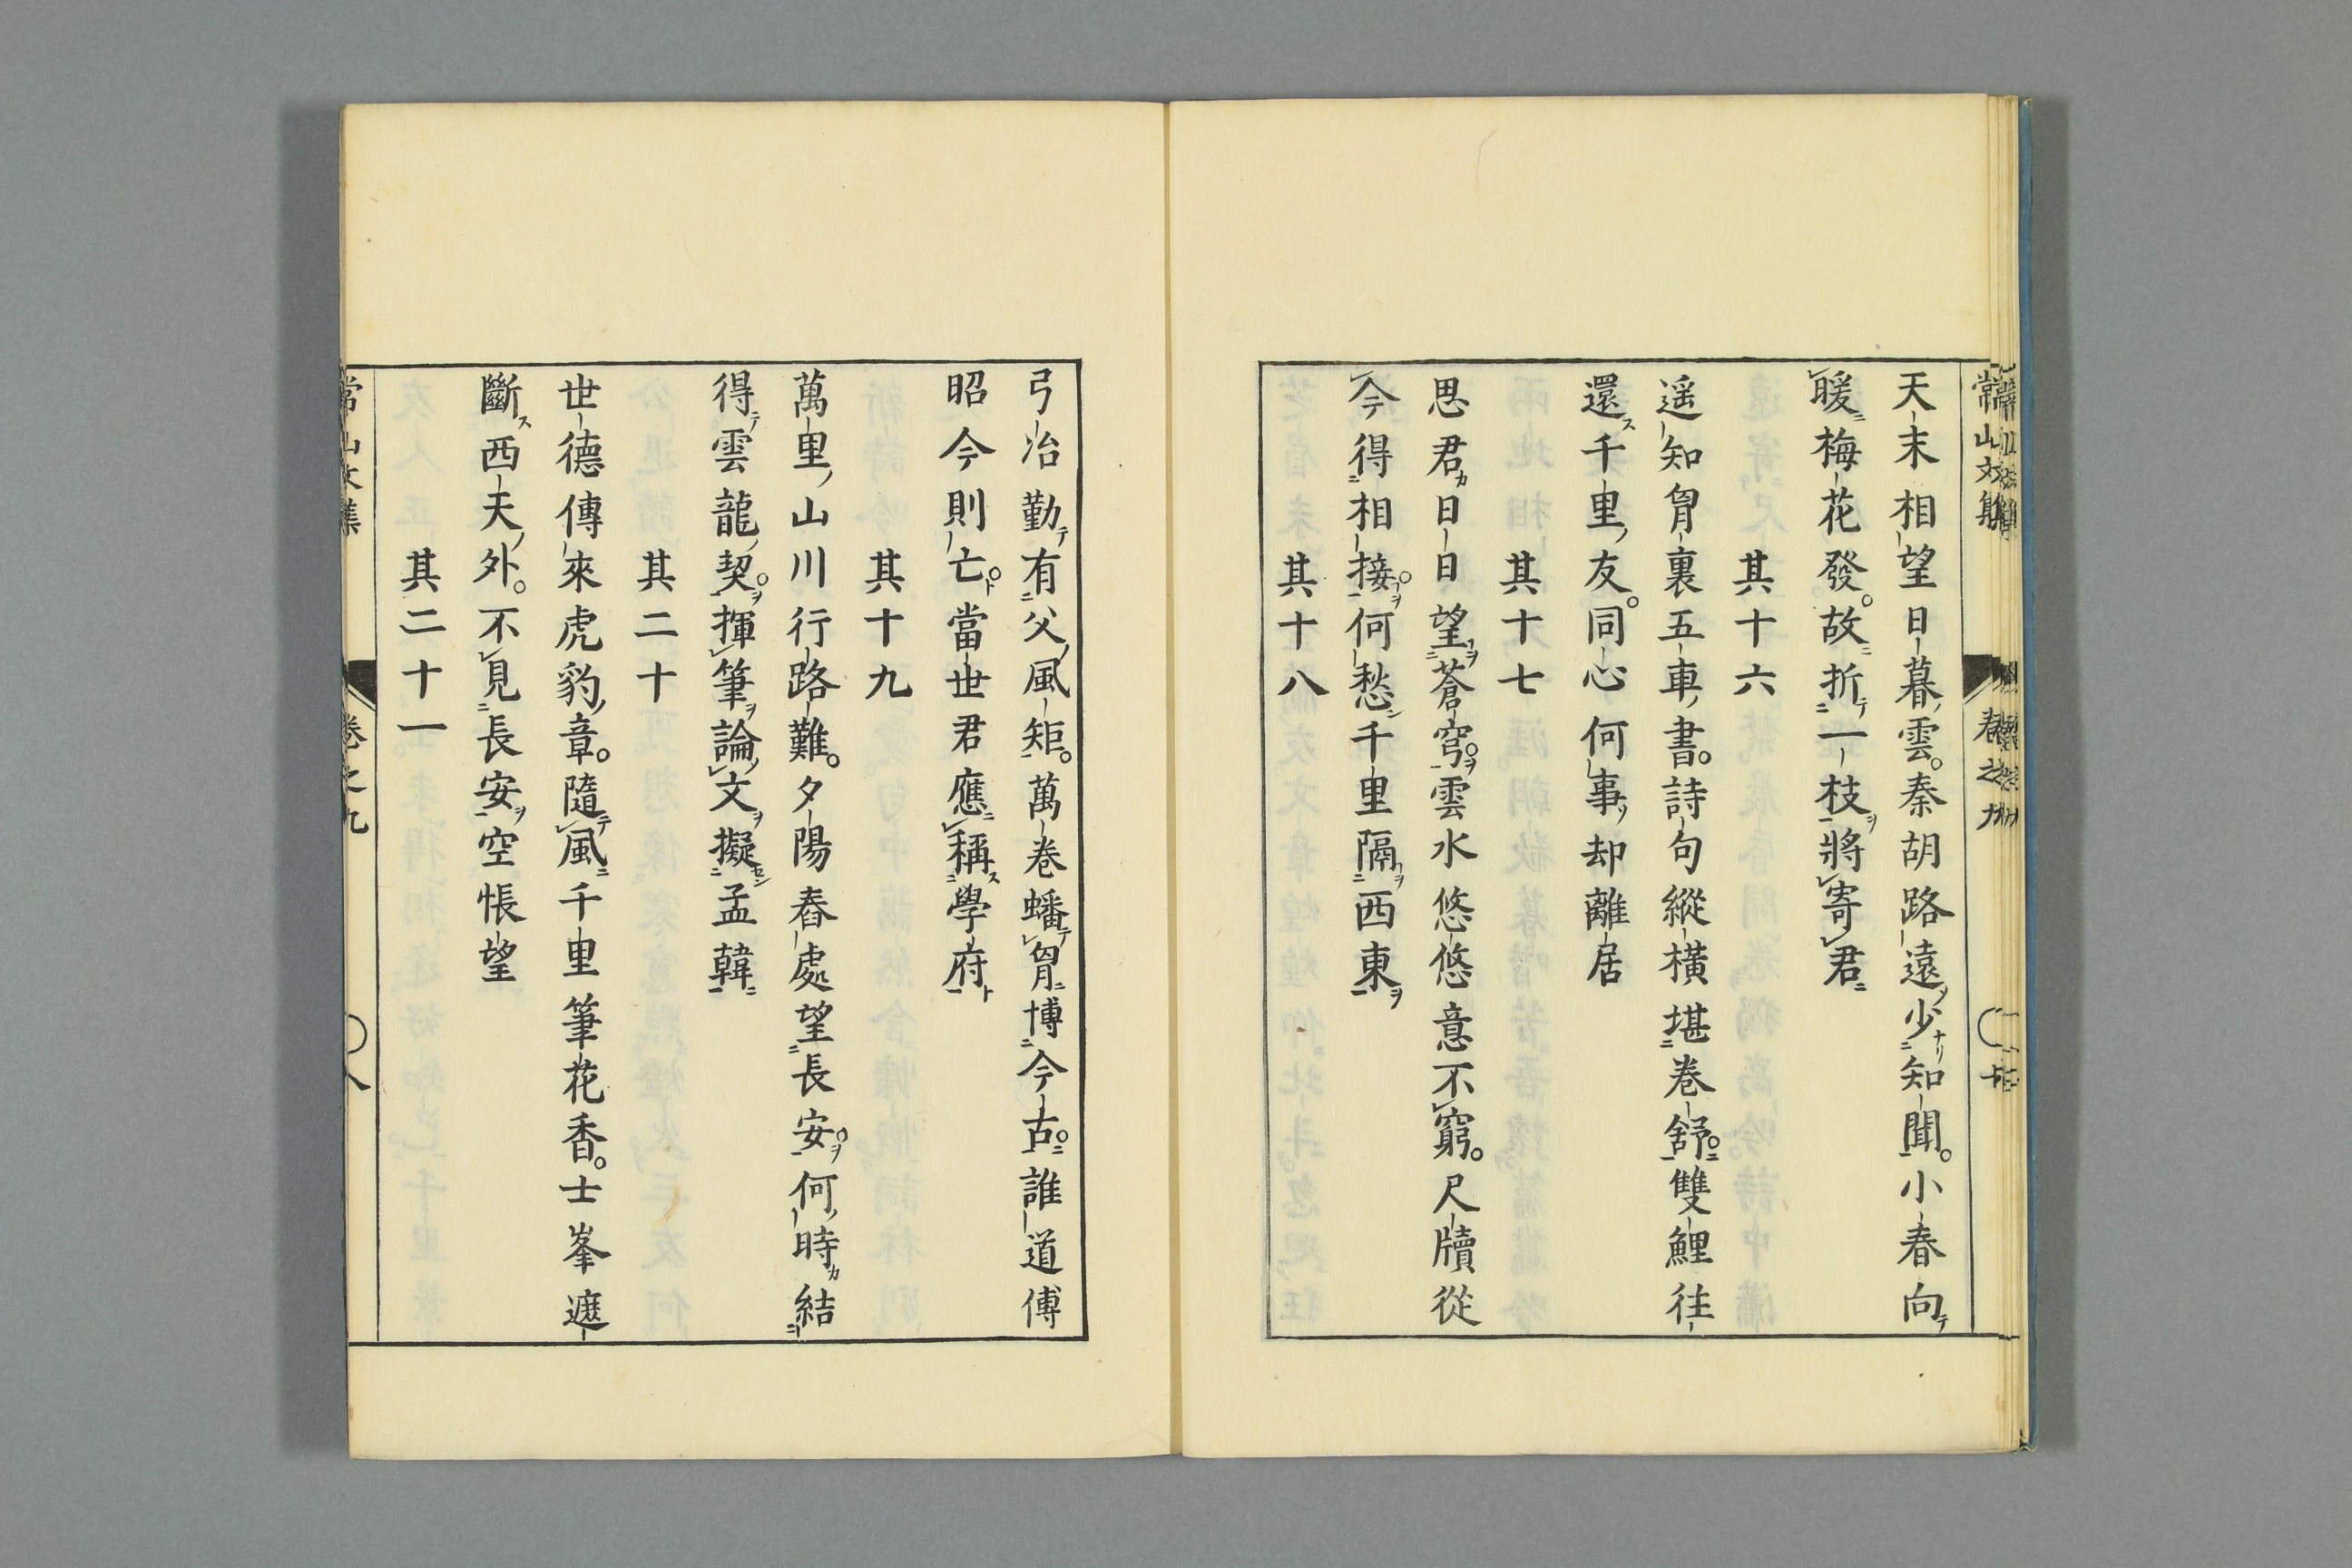 天末相望日暮雲。秦胡路遠少知聞。小春向
暖梅花發。故折一枝將寄君
其十六
遥知胷裏五車書。詩句縱橫堪卷舒。雙鯉往
還千里友。同心何事却離居
其十七
思君日日望蒼穹。雲水悠悠意不窮。尺牘從
今得相接。何愁千里隔西東
其十八
弓冶勤有父風矩。萬卷蟠胷博今古。誰道傅
昭今則亡。當世君應稱學府
其十九
萬里山川行路難。夕陽舂處望長安。何時結
得雲龍契。揮筆論文擬孟韓
其二十
世德傳來虎豹章。隨風千里筆花香。士峯遮
斷西天外。不見長安空悵望
其二十一
常山文集 卷之九 〇八